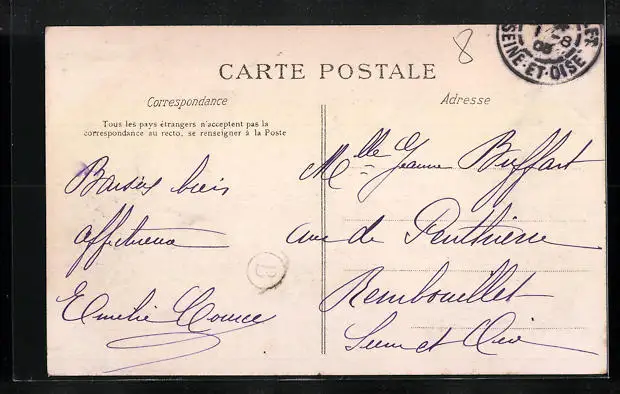 8
SEINE-ET-OISE
CARTE POSTALE
Correspondance
Adresse
Tous les pays étrangers n'acceptent pas la
correspondance au recto, se renseigner à la Poste
Baisers bien
affectueux
Emilie
B
Mlle Jeanne Buffart
rue de Penthièvre
Rambouillet
Seine et Oise